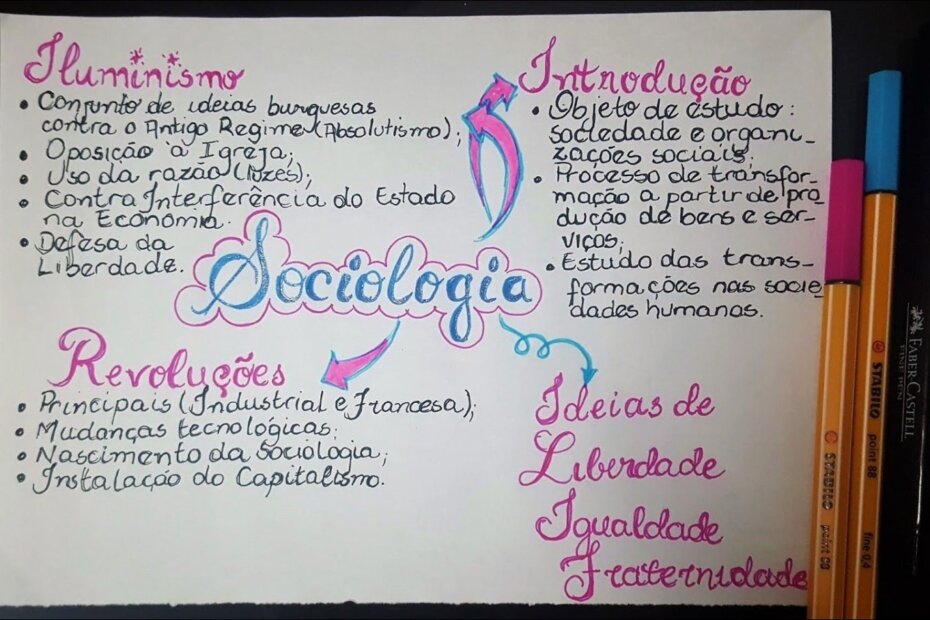 Iluminismo
• Conjunto de ideias burguesas
contra o Antigo Regime (Absolutismo);
• Oposição à Igreja;
• Uso da razão (luzes);
• Contra Interferência do Estado
na Economia.
• Defesa da
Liberdade.
Introdução
• Objeto de estudo:
sociedade e organi-
zações sociais;
• Processo de transfor-
mação a partir de pro-
dução de bens e ser-
viços;
• Estudo das trans-
formações nas socie-
dades humanas.
Sociologia
Revoluções
• Principais (Industrial e Francesa);
• Mudanças tecnológicas;
• Nascimento da Sociologia;
• Instalação do Capitalismo.
Ideias de
Liberdade
Igualdade
Fraternidade
STABILO point 88
STABILO point 88 fine 0,4
FABER-CASTELL
FINE PEN